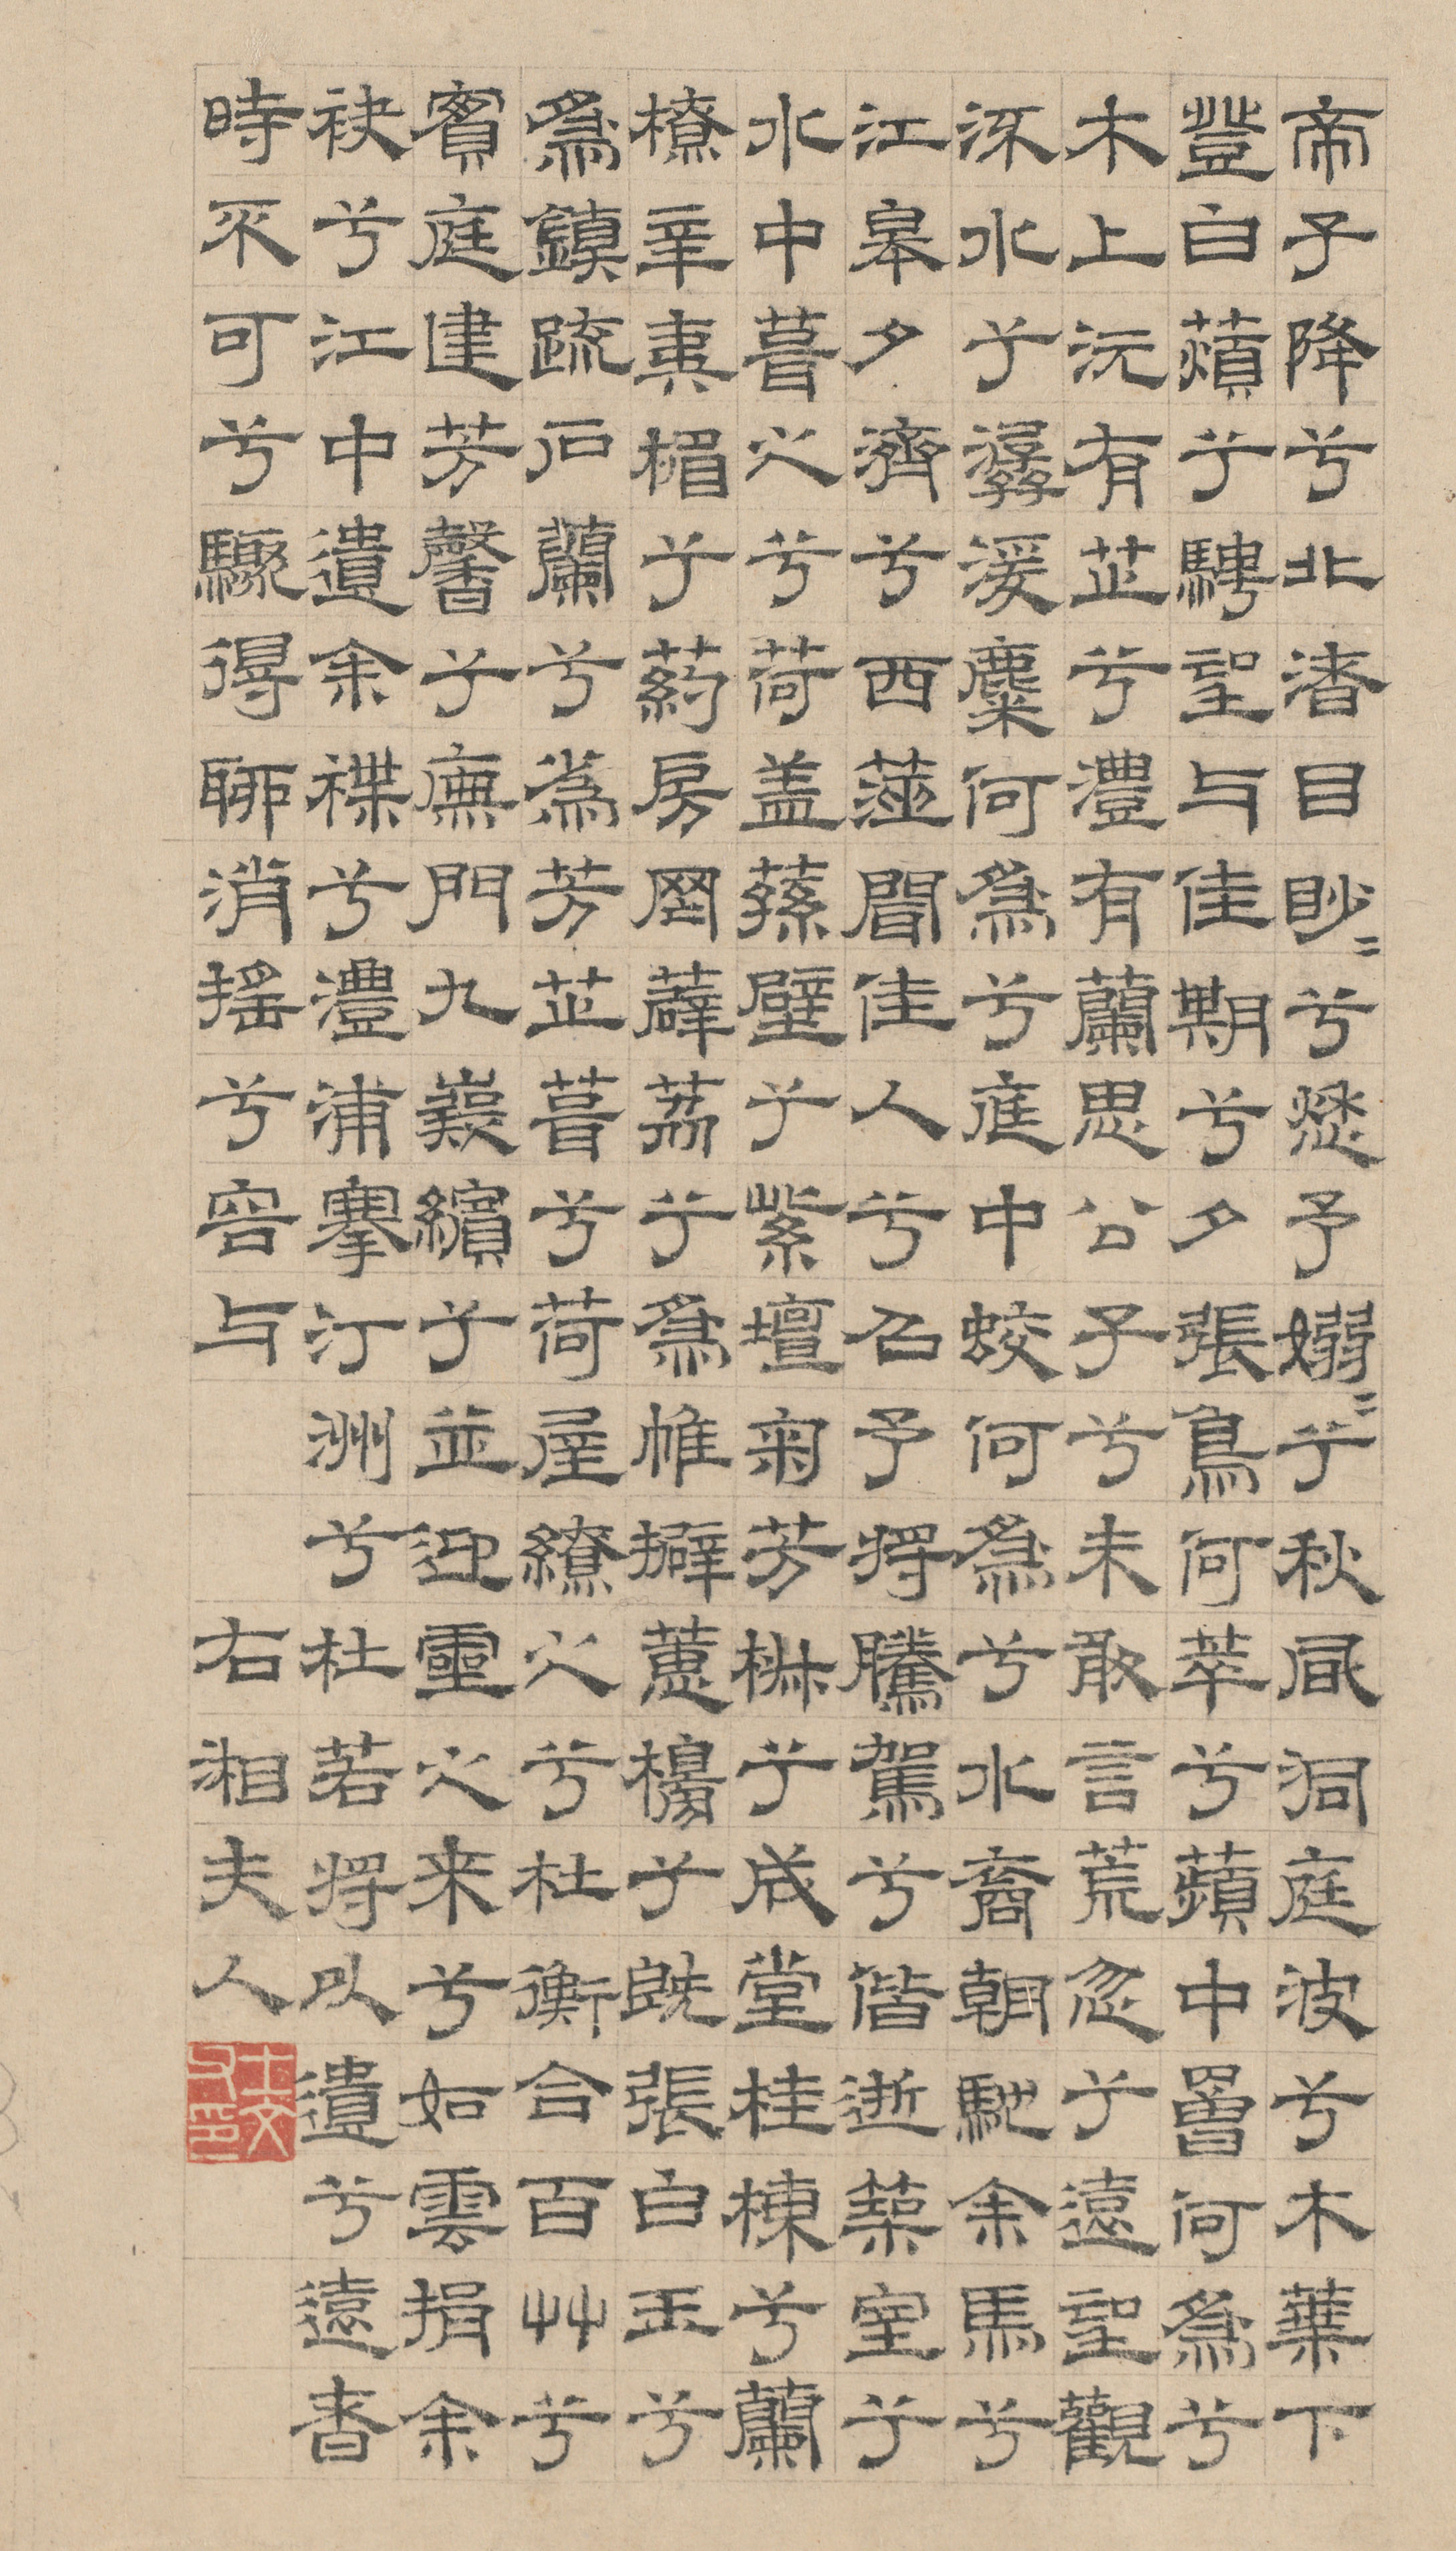 帝子降兮北渚目眇〻兮愁予嫋〻兮秋風洞庭波兮木葉下
登白薠兮騁望与佳期兮夕張鳥何萃兮蘋中罾何為兮
木上沅有芷兮澧有蘭思公子兮未敢言荒忽兮遠望觀
流水兮潺湲麋何為兮庭中蛟何為兮水裔朝馳余馬兮
江皋夕濟兮西澨聞佳人兮召予將騰駕兮偕逝築室兮
水中葺之兮荷盖蓀壁兮紫壇菊芳椒兮成堂桂棟兮蘭
橑辛夷楣兮葯房罔薜荔兮為帷擗蕙櫋兮既張白玉兮
為鎮疏石蘭兮為芳芷葺兮荷屋繚之兮杜衡合百艸兮
實庭建芳馨兮廡門九嶷繽兮並迎靈之来兮如雲捐余
袂兮江中遺余褋兮澧浦搴汀洲兮杜若將以遺兮遠者
時不可兮驟得聊消搖兮容与
右湘夫人